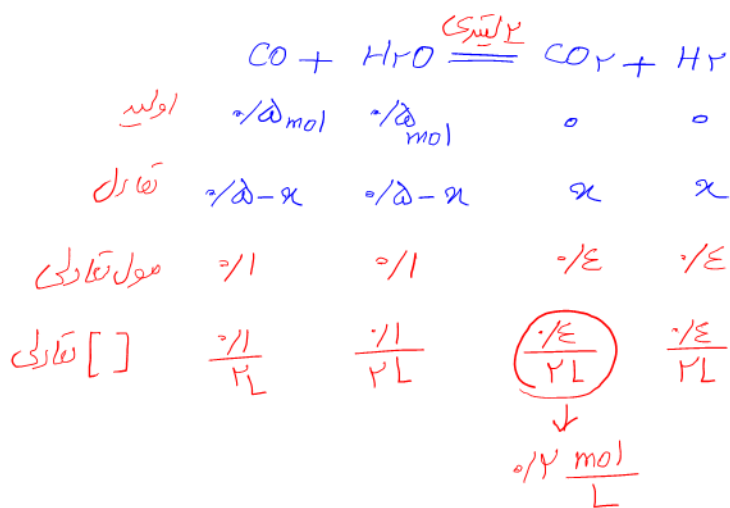 ۲ لیتری
CO + H۲O ⇌ CO۲ + H۲
اولیه ۰/۵ mol ۰/۵ mol ۰ ۰
تعادل ۰/۵-x ۰/۵-x x x
مول تعادلی ۰/۱ ۰/۱ ۰/۴ ۰/۴
[ ] تعادلی ۰/۱/۲L ۰/۱/۲L ۰/۴/۲L ۰/۴/۲L
↓
۰/۲ mol/L